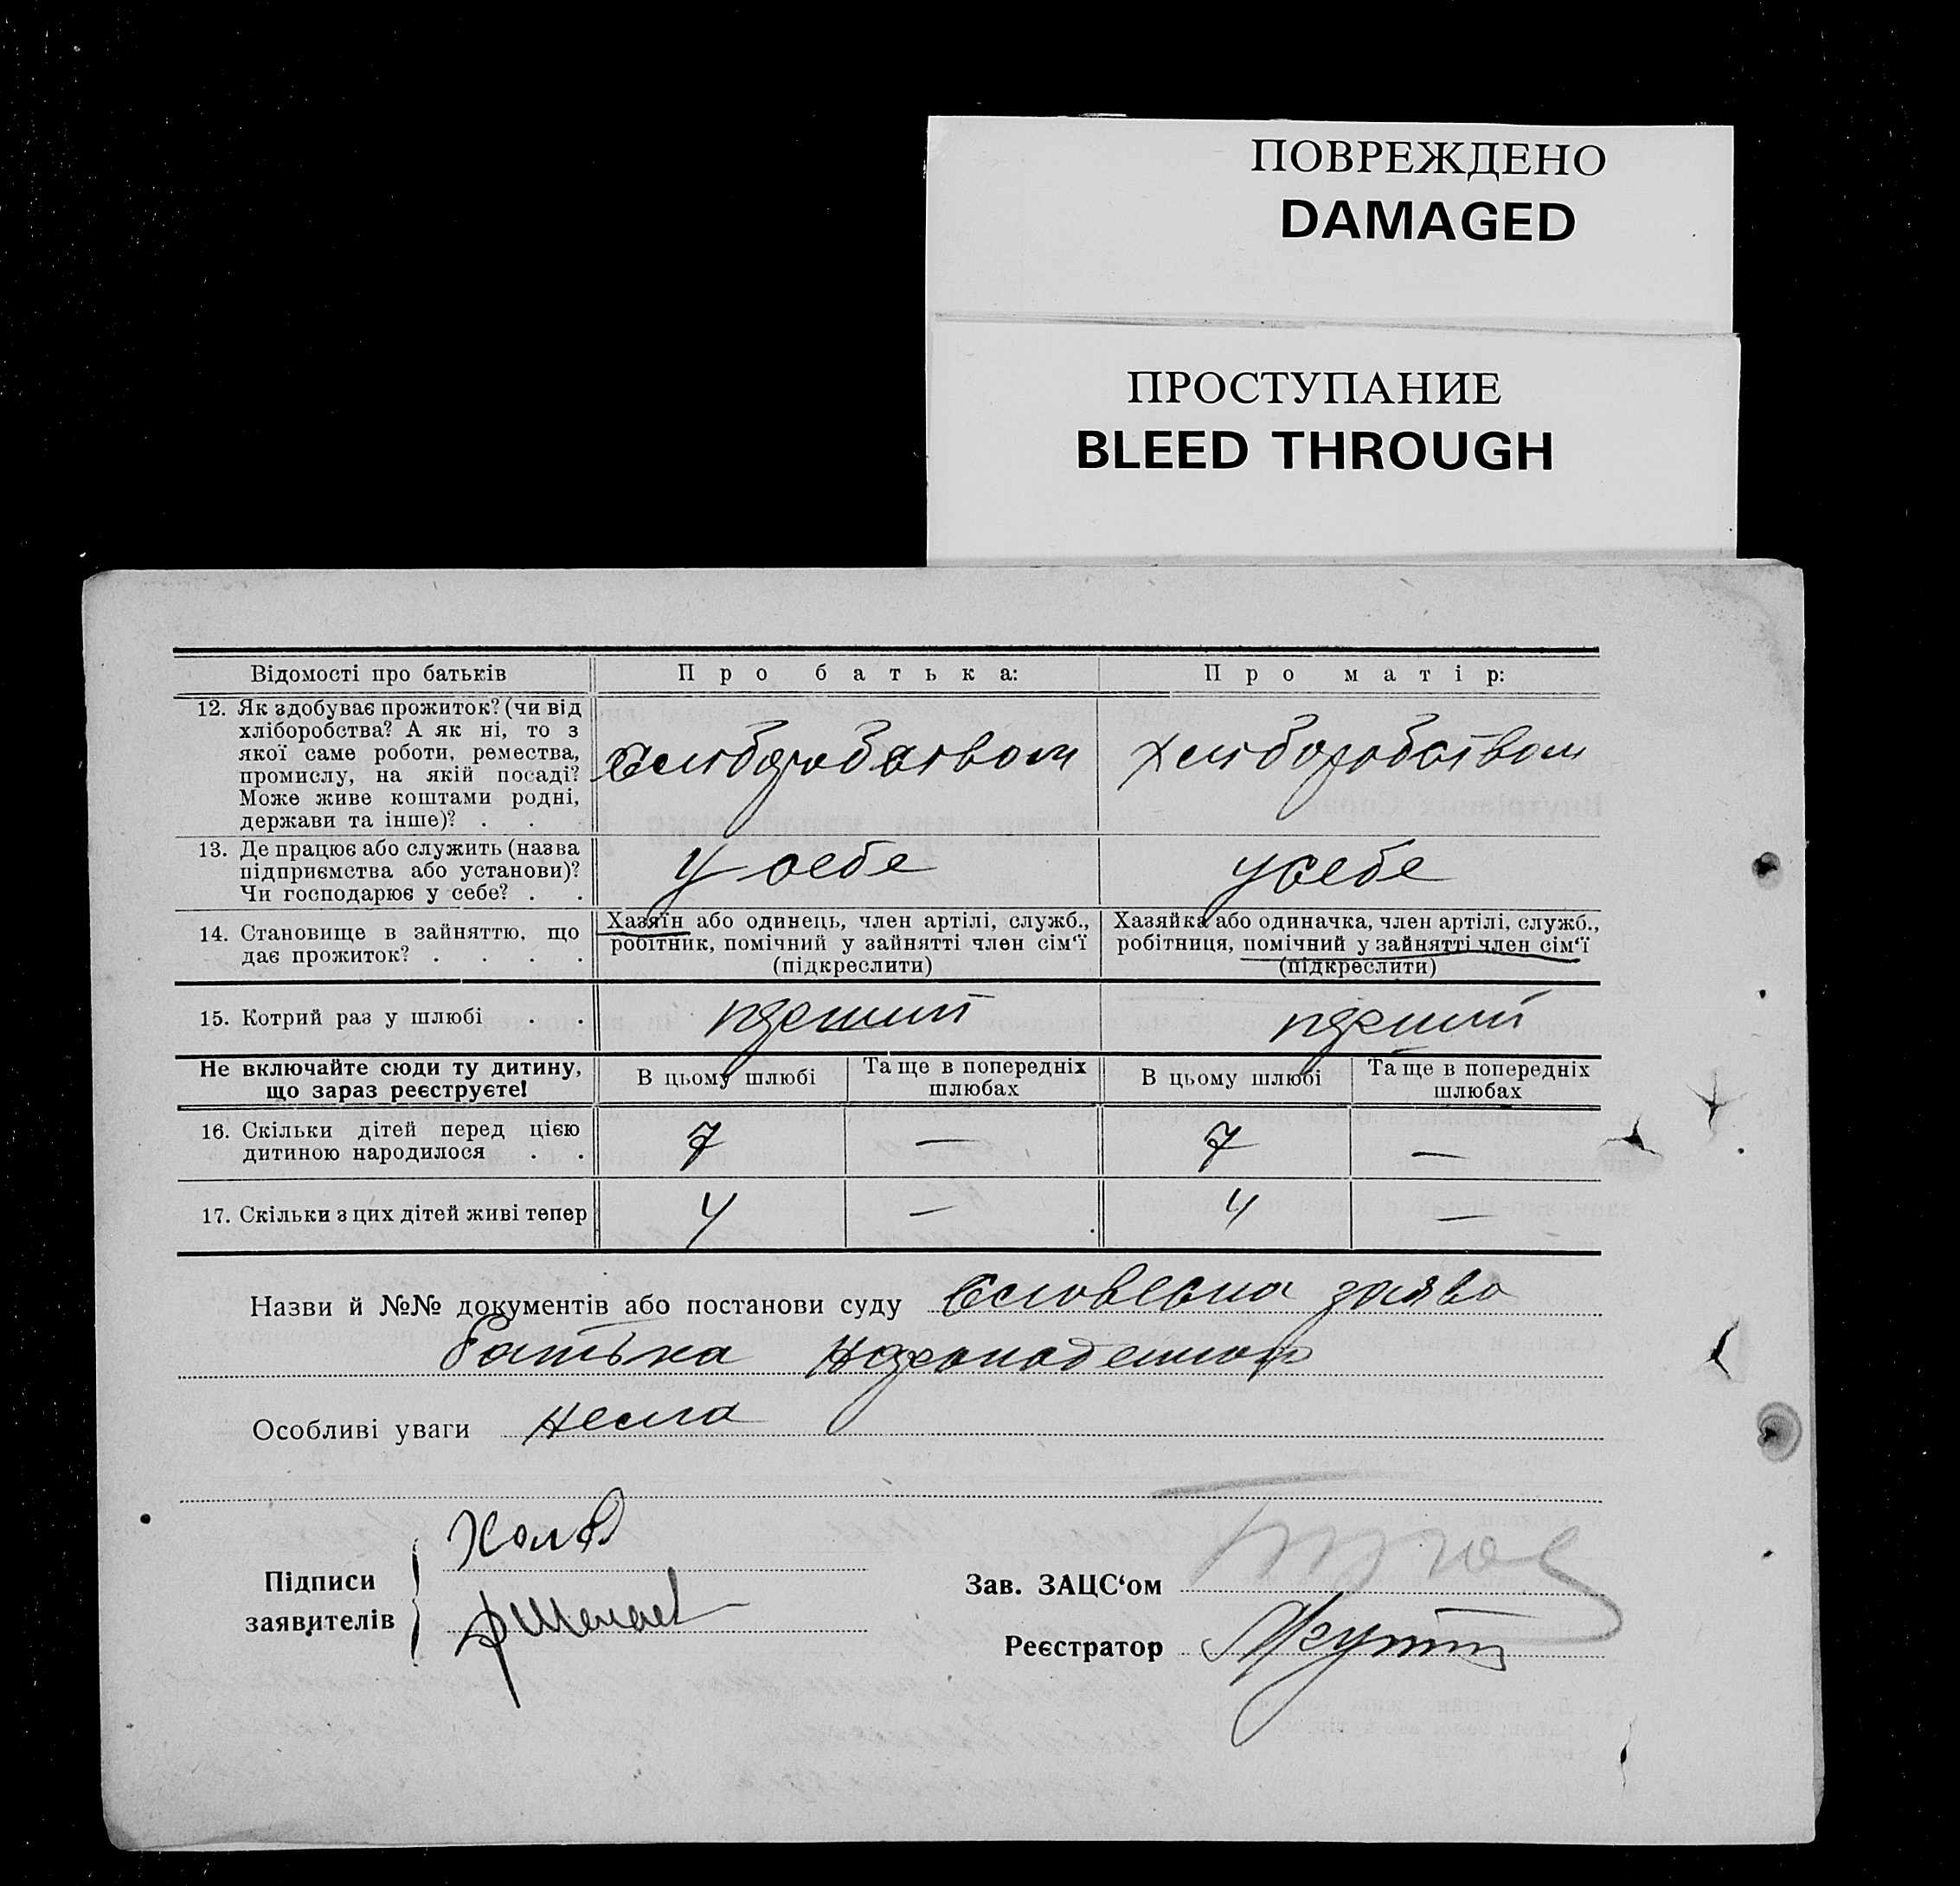 ПОВРЕЖДЕНО
DAMAGED
ПРОСТУПАНИЕ
BLEED THROUGH
Відомості про батьків
Про батька:
Про матір:
12. Як здобуває прожиток? (чи від
хліборобства? А як ні, то з
якої саме роботи, ремества,
промислу, на якій посаді?
Може живе коштами родні,
держави та інше)? . .
хліборобством
хліборобством
13. Де працює або служить (назва
підприємства або установи)?
Чи господарює у себе? . .
у себе
у себе
14. Становище в зайняттю, що
дає прожиток? . . . .
Хазяїн або одинець, член артілі, служб.,
робітник, помічний у зайнятті член сім‘ї
(підкреслити)
Хазяйка або одиначка, член артілі, служб.,
робітниця, помічний у зайнятті член сім‘ї
(підкреслити)
15. Котрий раз у шлюбі . .
перший
перший
Не включайте сюди ту дитину,
що зараз реєструєте!
В цьому шлюбі
Та ще в попередніх
шлюбах
В цьому шлюбі
Та ще в попередніх
шлюбах
16. Скільки дітей перед цією
дитиною народилося . .
7
—
7
—
17. Скільки з цих дітей живі тепер
4
—
4
—
Назви й №№ документів або постанови суду словесна заява
батька
Особливі уваги нема
Підписи
заявителів
Зав. ЗАЦС‘ом
Реєстратор